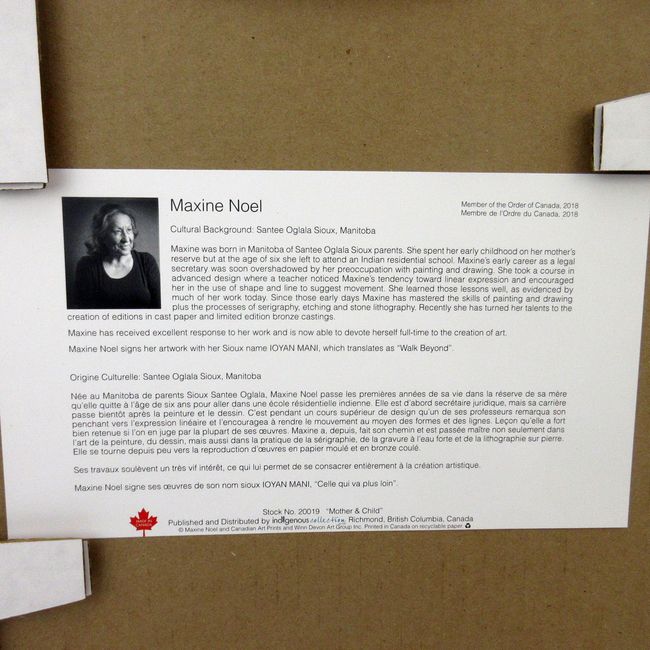 Maxine Noel
Member of the Order of Canada, 2018
Membre de l'Ordre du Canada, 2018
Cultural Background: Santee Oglala Sioux, Manitoba
Maxine was born in Manitoba of Santee Oglala Sioux parents. She spent her early childhood on her mother's
reserve but at the age of six she left to attend an Indian residential school. Maxine's early career as a legal
secretary was soon overshadowed by her preoccupation with painting and drawing. She took a course in
advanced design where a teacher noticed Maxine's tendency toward linear expression and encouraged
her in the use of shape and line to suggest movement. She learned those lessons well, as evidenced by
much of her work today. Since those early days Maxine has mastered the skills of painting and drawing
plus the processes of serigraphy, etching and stone lithography. Recently she has turned her talents to the
creation of editions in cast paper and limited edition bronze castings.
Maxine has received excellent response to her work and is now able to devote herself full-time to the creation of art.
Maxine Noel signs her artwork with her Sioux name IOYAN MANI, which translates as "Walk Beyond".
Origine Culturelle: Santee Oglala Sioux, Manitoba
Née au Manitoba de parents Sioux Santee Oglala, Maxine Noel passe les premières années de sa vie dans la réserve de sa mère
qu'elle quitte à l'âge de six ans pour aller dans une école résidentielle indienne. Elle est d'abord secrétaire juridique, mais sa carrière
passe bientôt après la peinture et le dessin. C'est pendant un cours supérieur de design qu'un de ses professeurs remarqua son
penchant vers l'expression linéaire et l'encouragea à rendre le mouvement au moyen des formes et des lignes. Leçon qu'elle a fort
bien retenue si l'on en juge par la plupart de ses œuvres. Maxine a, depuis, fait son chemin et est passée maître non seulement dans
l'art de la peinture, du dessin, mais aussi dans la pratique de la sérigraphie, de la gravure à l'eau forte et de la lithographie sur pierre.
Elle se tourne depuis peu vers la reproduction d'œuvres en papier moulé et en bronze coulé.
Ses travaux soulèvent un très vif intérêt, ce qui lui permet de se consacrer entièrement à la création artistique.
Maxine Noel signe ses œuvres de son nom sioux IOYAN MANI, "Celle qui va plus loin".
Stock No. 20019 "Mother & Child"
MADE IN
CANADA
Published and Distributed by indigenous collection, Richmond, British Columbia, Canada
© Maxine Noel and Canadian Art Prints and Winn Devon Art Group Inc. Printed in Canada on recyclable paper.